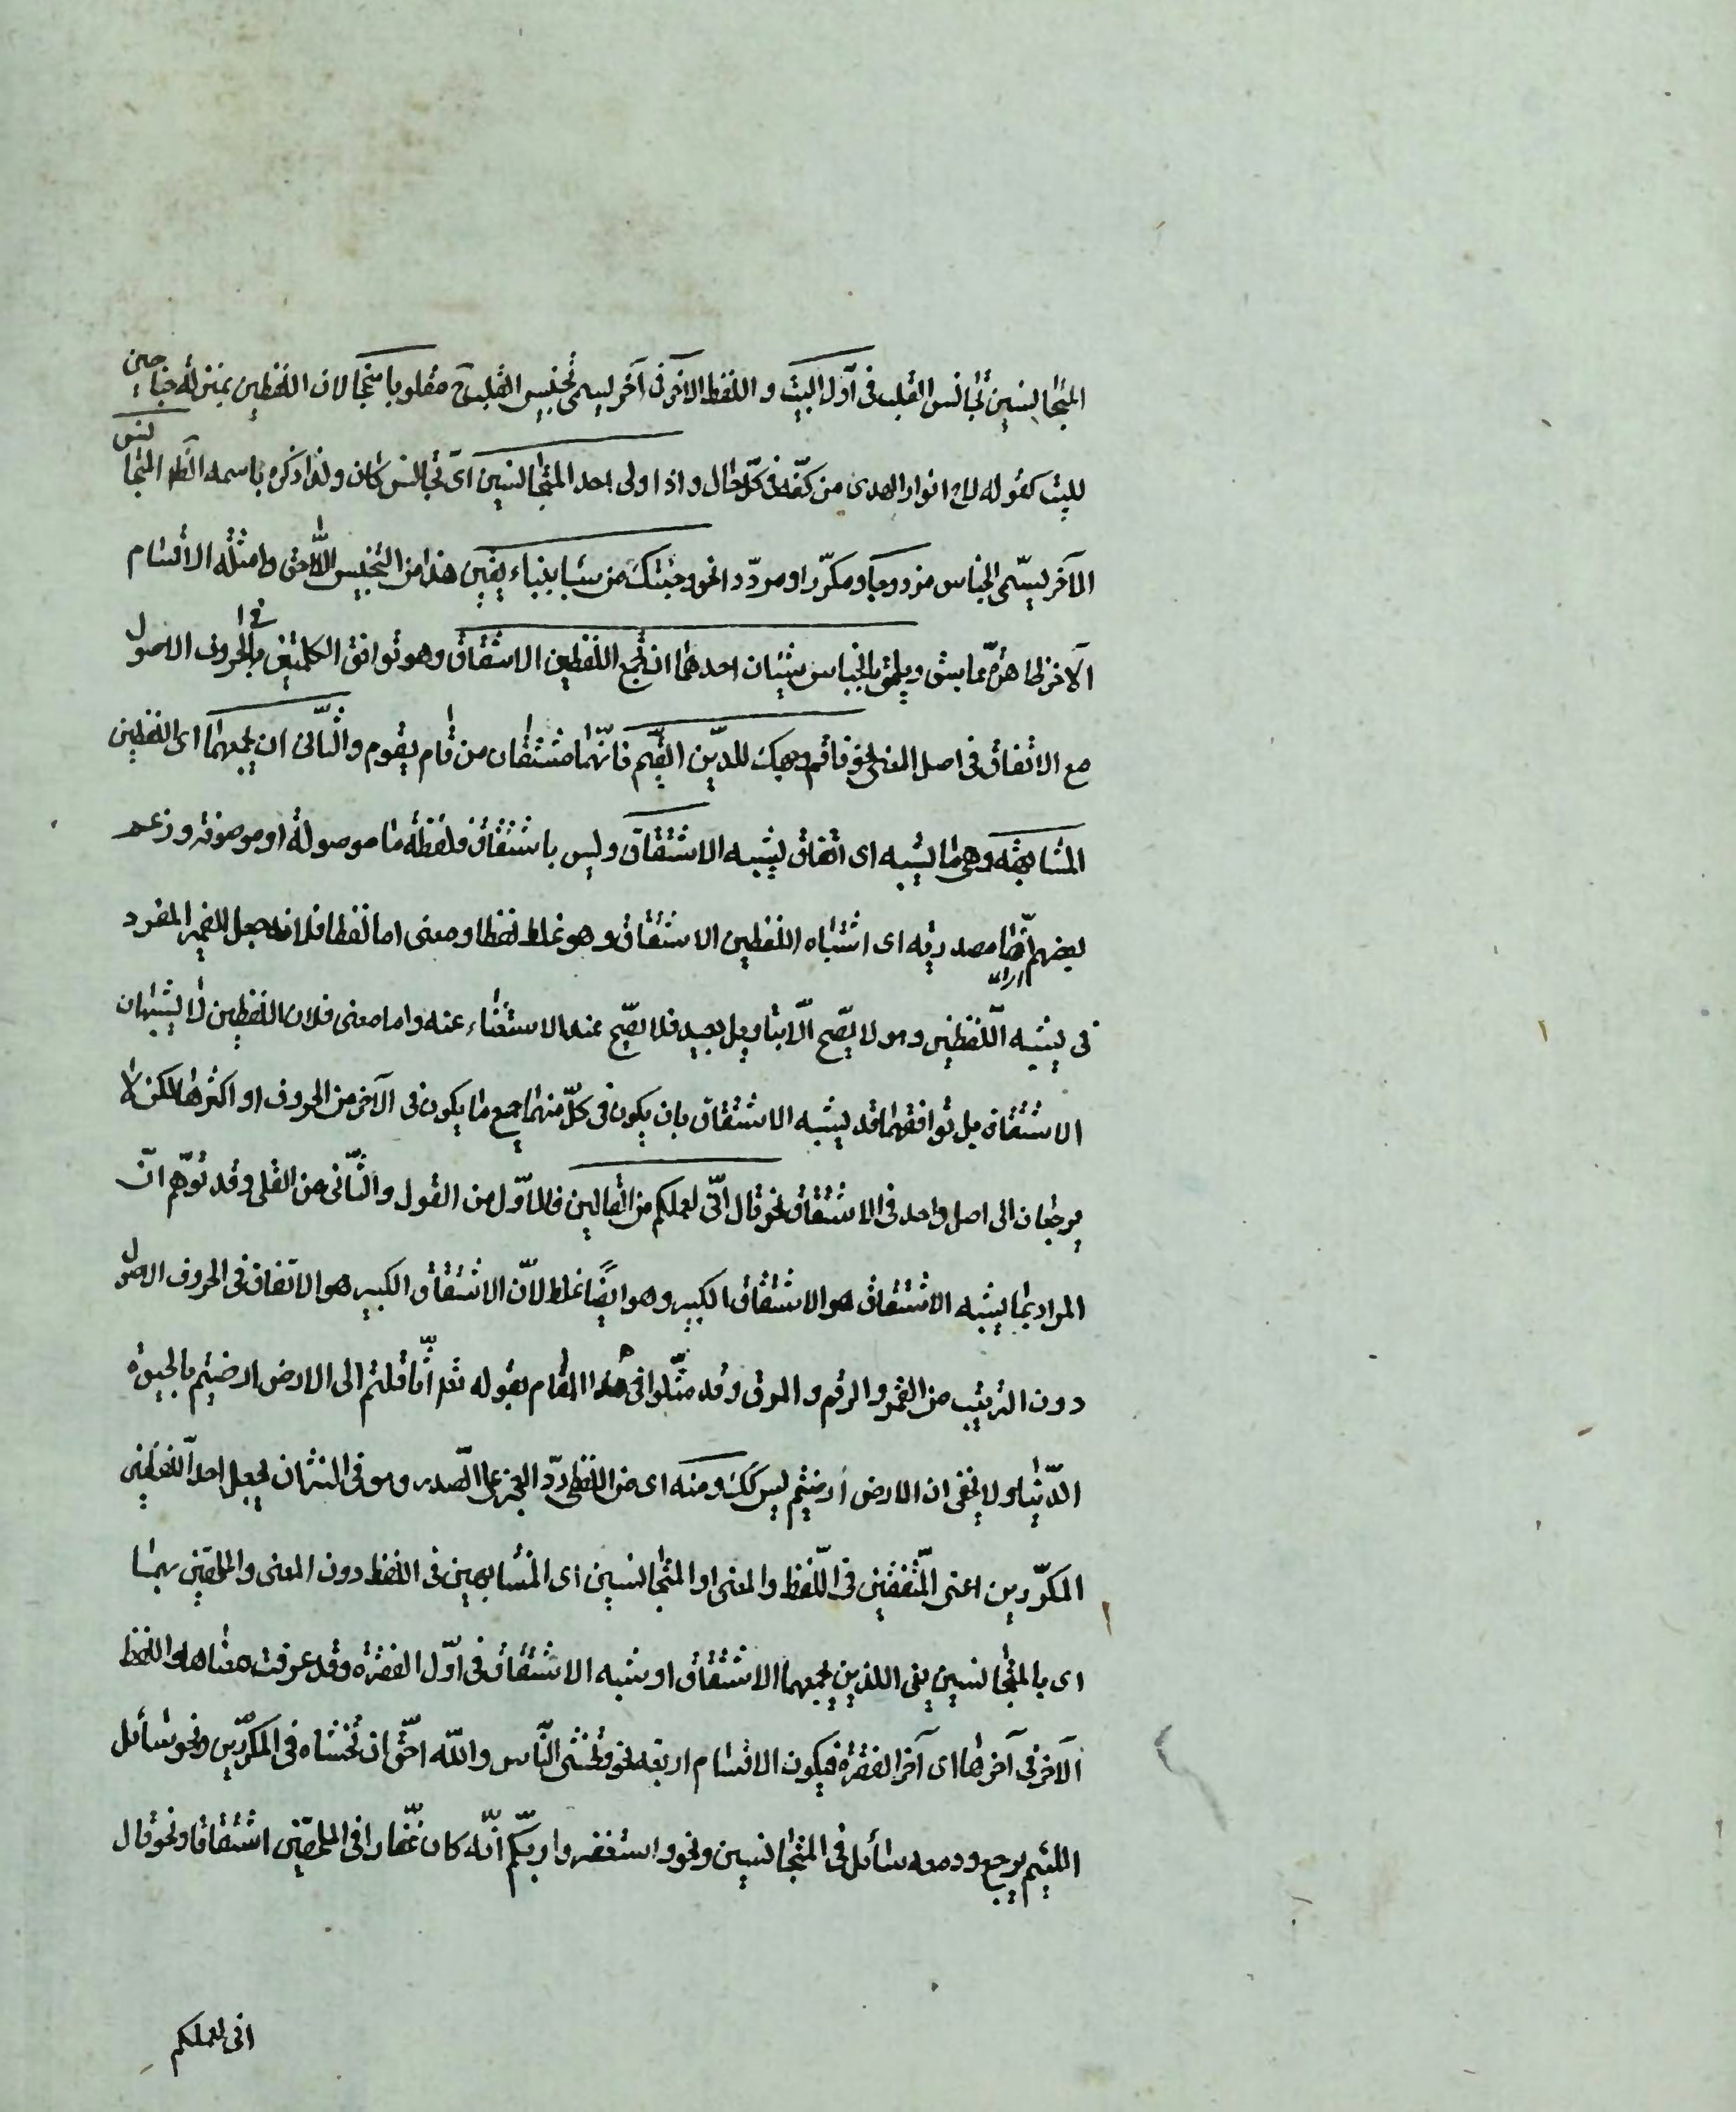 المتجانسين تجانس القلب فى آول البيت و اللفظ الآخر فى آخر يسمى تجنيس القلب ح مقلوبا مجنحا لان اللفظين بمنزلة جناحين
للبيت كقوله لاح انوار الهدى من كفّه فى كلّ حال و اذا ولى احد المتجانسين اى تجانس كان و لذا ذكره باسمه الظ المتجانس
الآخر يسمّى الجناس مزدوجا و مكرّرا و مردّدا نحو و جئتك من سبا بنباء يقين هذا من التجنيس اللاحق و امثلة الاقسام
الآخر ظاهرة مما سبق و يلحق بالجناس شيئان احدهما ان تجمع اللفظين الاشتقاق و هو توافق الكلمتين فى الحروف الاصول
مع الاتفاق فى اصل المعنى نحو فاقم وجهك للدّين القيّم فانّهما مشتقان من قام يقوم و الثّانى ان يجمعهما اى اللفظين
المشابهة و هى ما يشبه اى اتفاق يشبه الاشتقاق و ليس باشتقاق فلفظة ما موصولة او موصوفة و زعم
بعضهم انّها مصدرية اى اشتباه اللفظين الاشتقاق و هو غلط لفظا و معنى اما لفظا فلانه جعل الضمير المفرد
فى يشبه اللفظين و هو لا يصّح الّا بتاويل بعيد فلا يصّح عند الاستغناء عنه و اما معنى فلان اللفظين لا يشبهان
الاشتقاق بل توافقهما قد يشبه الاشتقاق بان يكون فى كلّ منهما جميع ما يكون فى الآخر من الحروف او اكثرها لكن لا
يرجعان الى اصل واحد فى الاشتقاق نحو قال انّى لعملكم من القالين فالاوّل من القول و الثّانى من القلى و قد توّهم انّ
المراد بما يشبه الاشتقاق هو الاشتقاق الكبير و هو ايضًا غلط لانّ الاشتقاق الكبير هو الاتفاق فى الحروف الاصول
دون الترتيب من القمر و الرقم و المرق و قد مثّلوا فى هذا المقام بقوله تعد اثّاقلتم الى الارض ارضيتم بالحيوة
الدّنيا و لا يخفى ان الارض ارضيتم ليس كك و منه اى من اللفظى ردّ العجز على الصّدر و هو فى النثر ان يجعل احد اللفظين
المكرّرين اعنى المتّفقين فى اللّفظ و المعنى او المتجانسين اى المتشابهين فى اللفظ دون المعنى و الملحقين بهما
اى بالمتجانسين يعنى اللذين يجمعهما الاشتقاق او شبه الاشتقاق فى اوّل الفقرة و قد عرفت معناها و اللفظ
الآخر فى آخرها اى آخر الفقرة فيكون الاقسام اربعة نحو و تخشى النّاس و اللّه احّق ان تخشاه فى المكرّرين و نحو سائل
اللئيم يرجع و دمعه سائل فى المتجانسين و نحو و استغفروا ربّكم انّه كان غفّارا فى الملحقين اشتقاقا و نحو قال
انى لعملكم